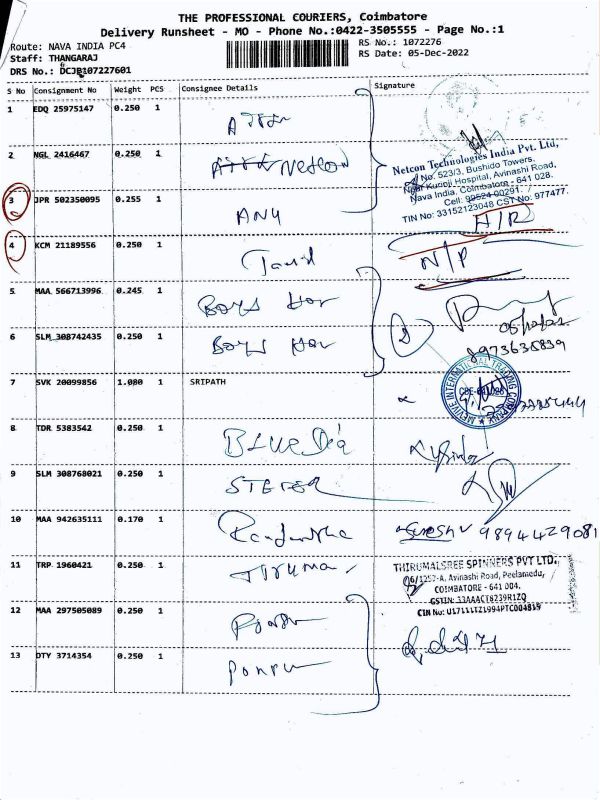 THE PROFESSIONAL COURIERS, Coimbatore
Delivery Runsheet - MO - Phone No.:0422-3505555 - Page No.:1
Route: NAVA INDIA PC4
RS No.: 1072276
Staff: THANGARAJ
RS Date: 05-Dec-2022
DRS No.: DCJB107227601
S No Consignment No Weight PCS Consignee Details Signature
1 EDQ 25975147 0.250 1
2 NGL 2416467 0.250 1 Netcon
Netcon Technologies India Pvt. Ltd,
No. 523/3, Bushido Towers,
Near Kurinji Hospital, Avinashi Road,
Nava India, Coimbatore - 641 028.
Cell: 99524 00291.
TIN No: 33152123048 CST No: 977477.
3 JPR 502350095 0.255 1 ANU H/R
4 KCM 21189556 0.250 1 Tamil N/P
5 MAA 566713996 0.245 1 Boys Hos
6 SLM 308742435 0.250 1 Boys Hos
8973635839
7 SVK 20099856 1.080 1 SRIPATH
INTERNATIONAL TRADING COMPANY
8 TDR 5383542 0.250 1 BLUE Dia
9 SLM 308768021 0.250 1
10 MAA 942635111 0.170 1 Suresh 9894429081
11 TRP 1960421 0.250 1 Tiruma
THIRUMALSREE SPINNERS PVT LTD.,
96/1257-A, Avinashi Road, Peelamedu,
COIMBATORE - 641 004.
GSTIN: 33AAACT8239R1ZQ
CIN No: U17111TZ1994PTC004819
12 MAA 297505089 0.250 1
13 DTY 3714354 0.250 1